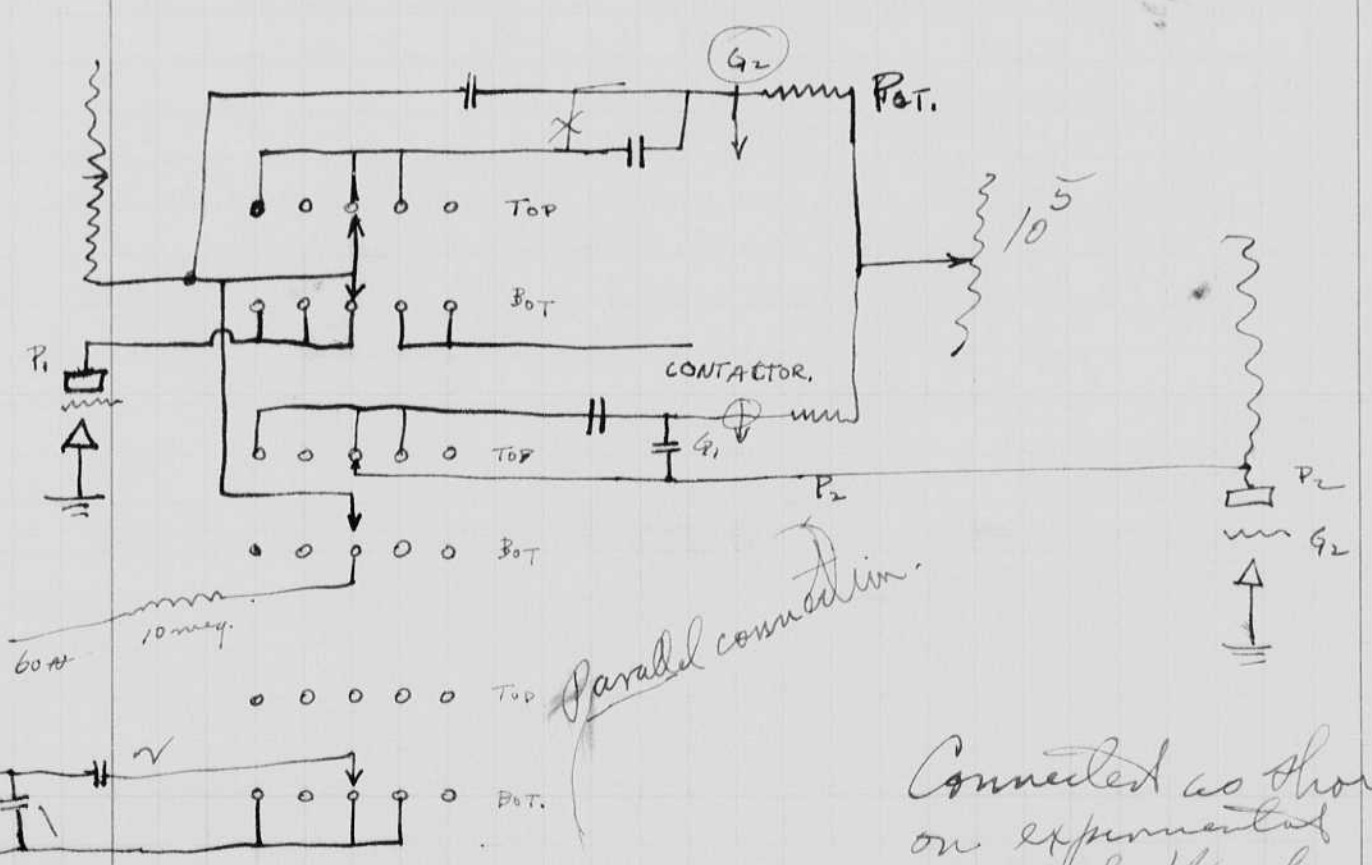 G2
POT.
TOP
10^5
BOT
P1
CONTACTOR.
TOP
G1
P2
P2
G2
BOT
10 meg.
60~
Parallel connection.
TOP
BOT.
Connected as
on experimental